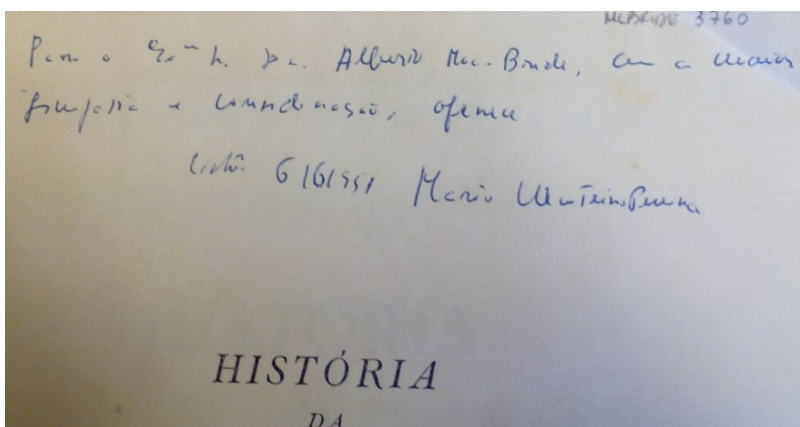 McBRIDE 3760
Para o Exmo Sr. Dr. Alberto Mac-Bride, com a maior
simpatia e consideração, oferece
Lisboa 6/6/951 Mario Monteiro Pereira
HISTÓRIA
DA